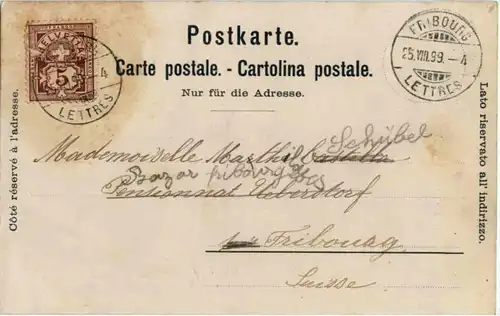 Postkarte.
Carte postale. - Cartolina postale.
Nur für die Adresse.
HELVETIA
5
LETTRES
4
FRIBOURG
25.VIII.99.-4
LETTRES
Côté réservé à l'adresse.
Lato riservato all' indirizzo.
Schübel
Mademoiselle
Bazar fribourgeois
Pensionnat Ueberstorf
Fribourg
Suisse